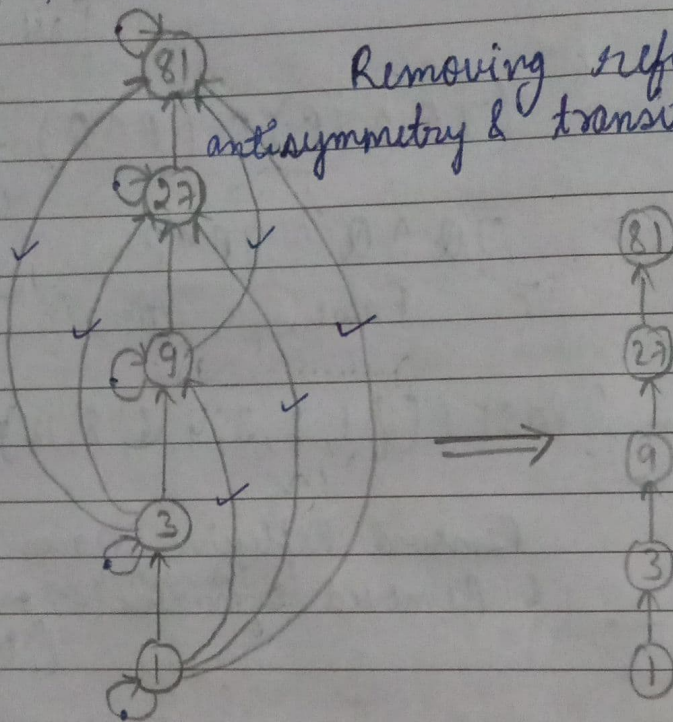 81
Removing ref
antisymmetry & transi
27
81
27
9
9
3
3
1
1